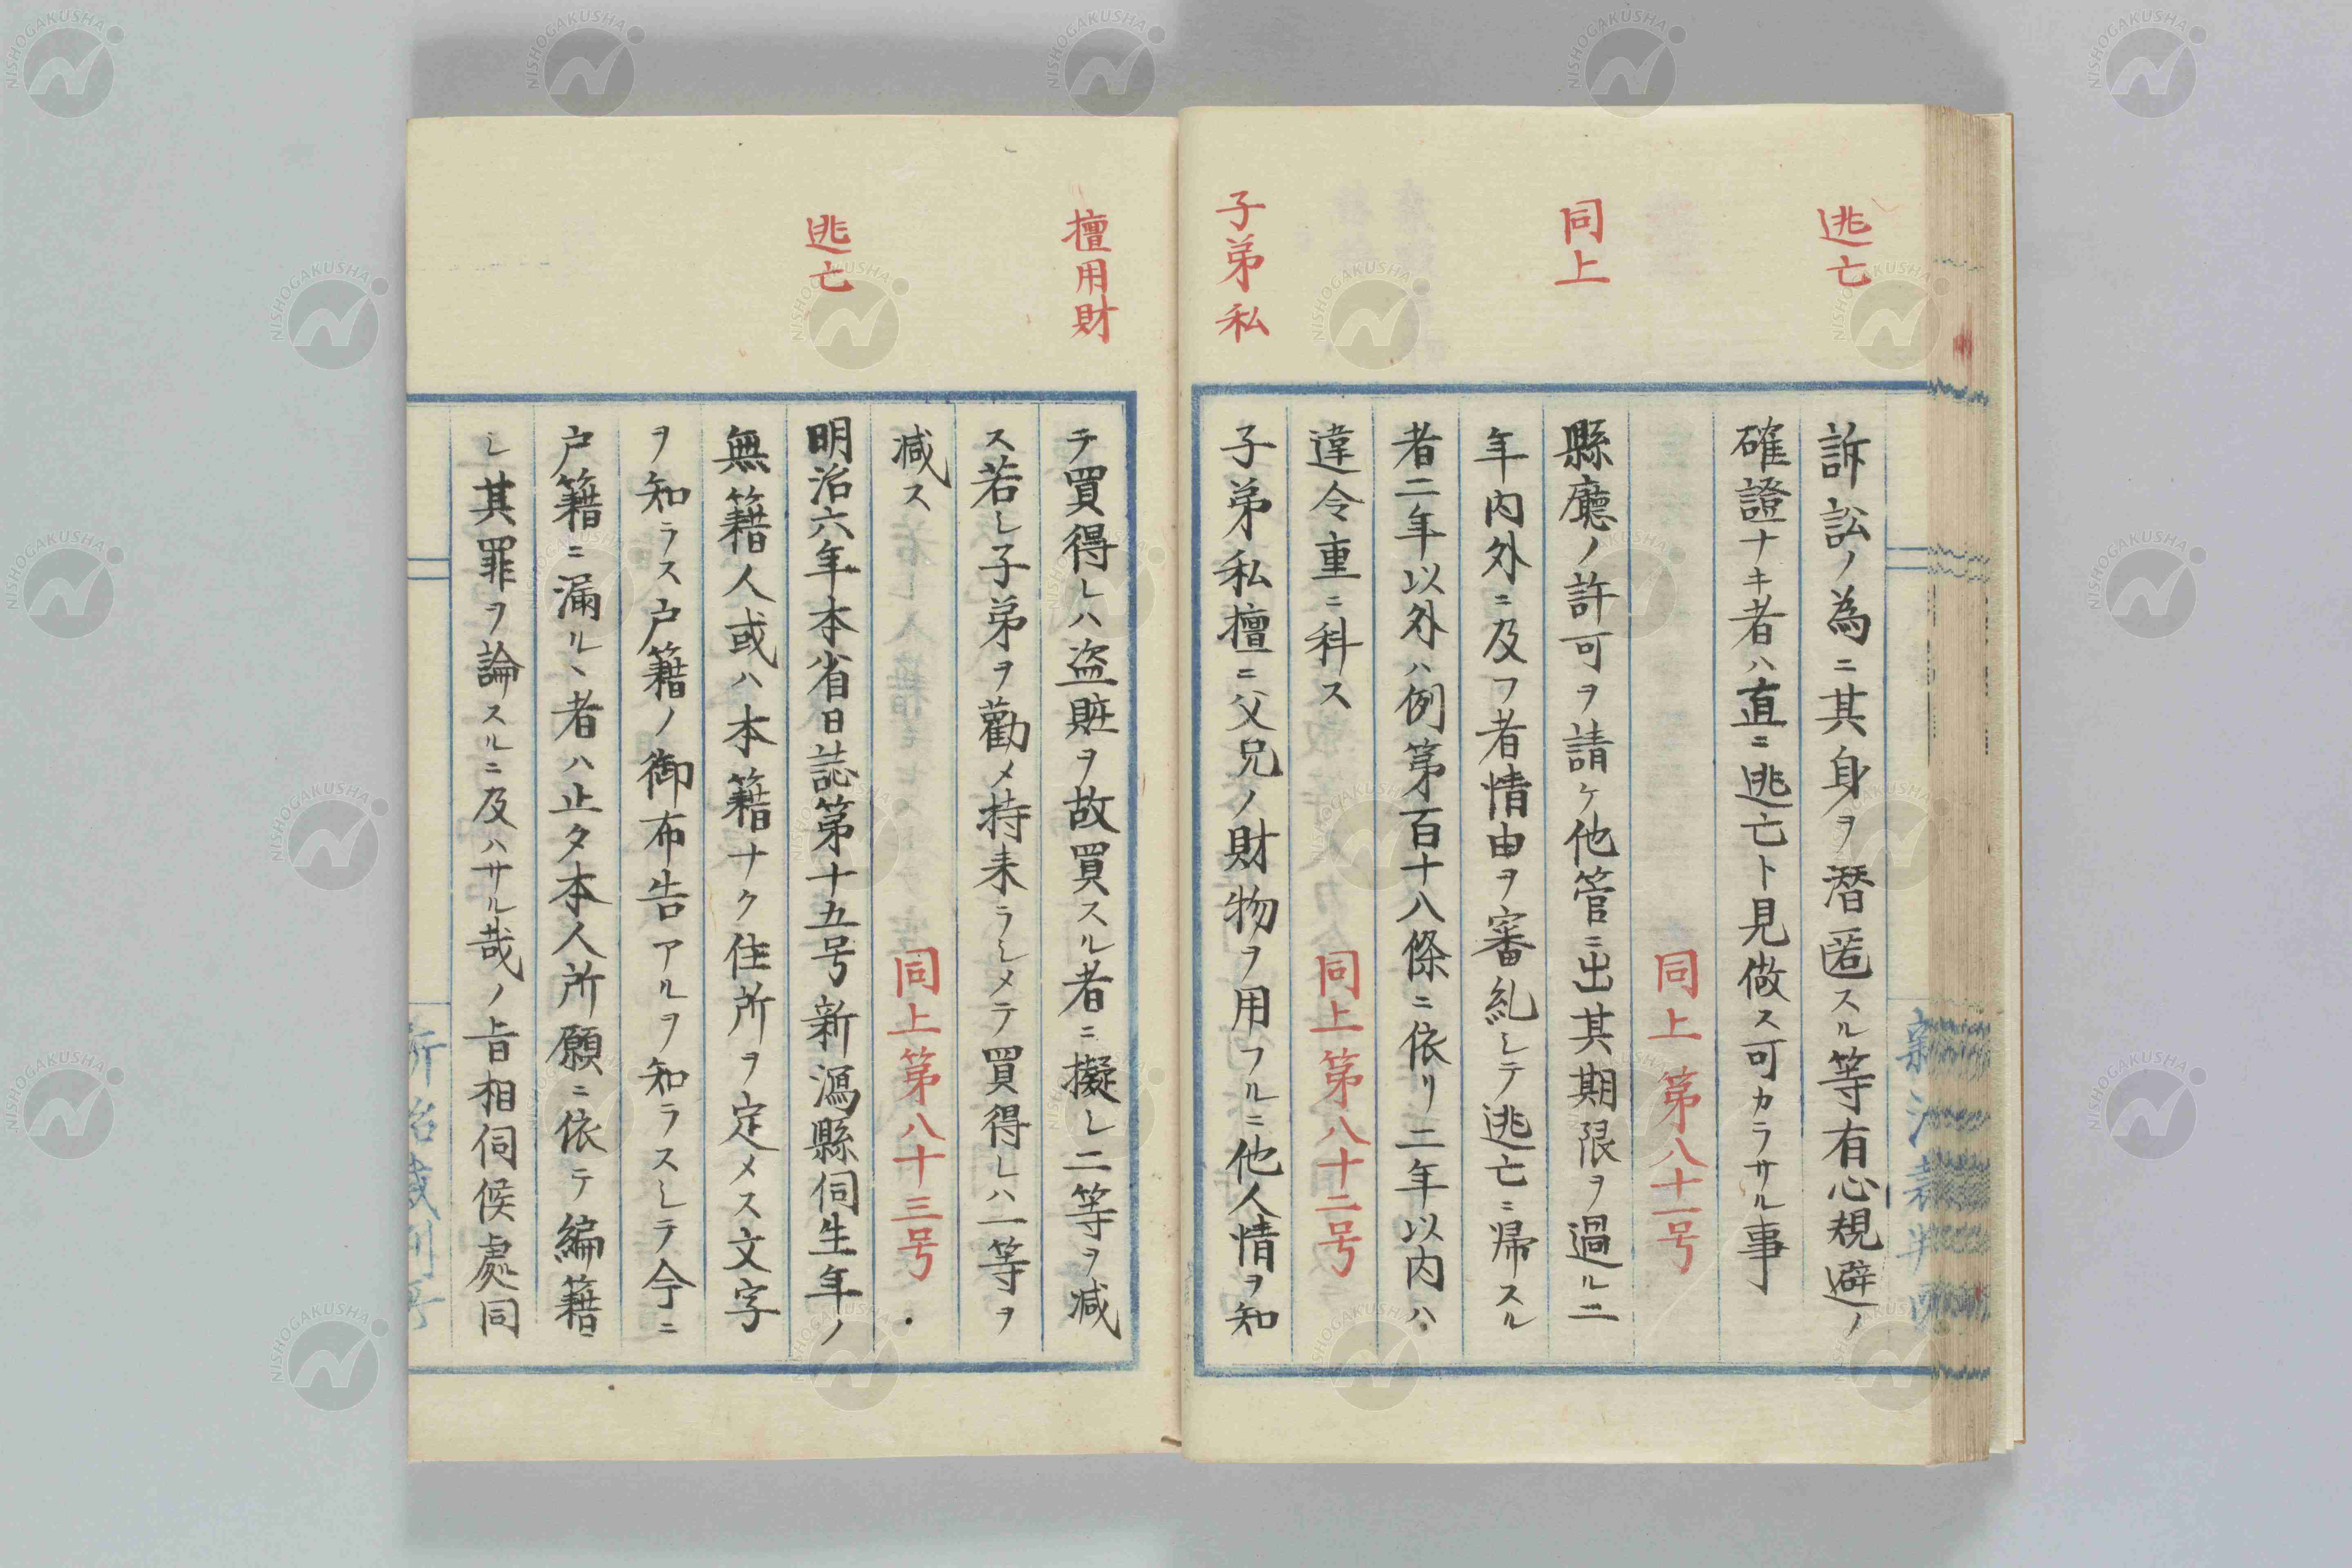 逃亡
訴訟ノ為ニ其身ヲ潜匿スル等有心規避ノ
確證ナキ者ハ直ニ逃亡ト見做ス可カラサル事
同上第八十一号
同上
縣廳ノ許可ヲ請ケ他管ニ出其期限ヲ過ル二
年内外ニ及フ者情由ヲ審糺シテ逃亡ニ帰スル
者二年以外ハ例第百十八條ニ依リ二年以内ハ
違令重ニ科ス
同上第八十二号
子弟私
子弟私擅ニ父兄ノ財物ヲ用フルニ他人情ヲ知
擅用財
テ買得シハ盗賍ヲ故買スル者ニ擬シ二等ヲ減
ス若シ子弟ヲ勸メ持来ラシメテ買得シハ一等ヲ
減ス
同上第八十三号
逃亡
明治六年本省日誌第十五号新潟縣伺生年ノ
無籍人或ハ本籍ナク住所ヲ定メス文字
ヲ知ラス戸籍ノ御布告アルヲ知ラスシテ今ニ
戸籍ニ漏ルヽ者ハ止タ本人所願ニ依テ編籍
シ其罪ヲ論スルニ及ハサル哉ノ旨相伺候處同
NISHOGAKUSHA